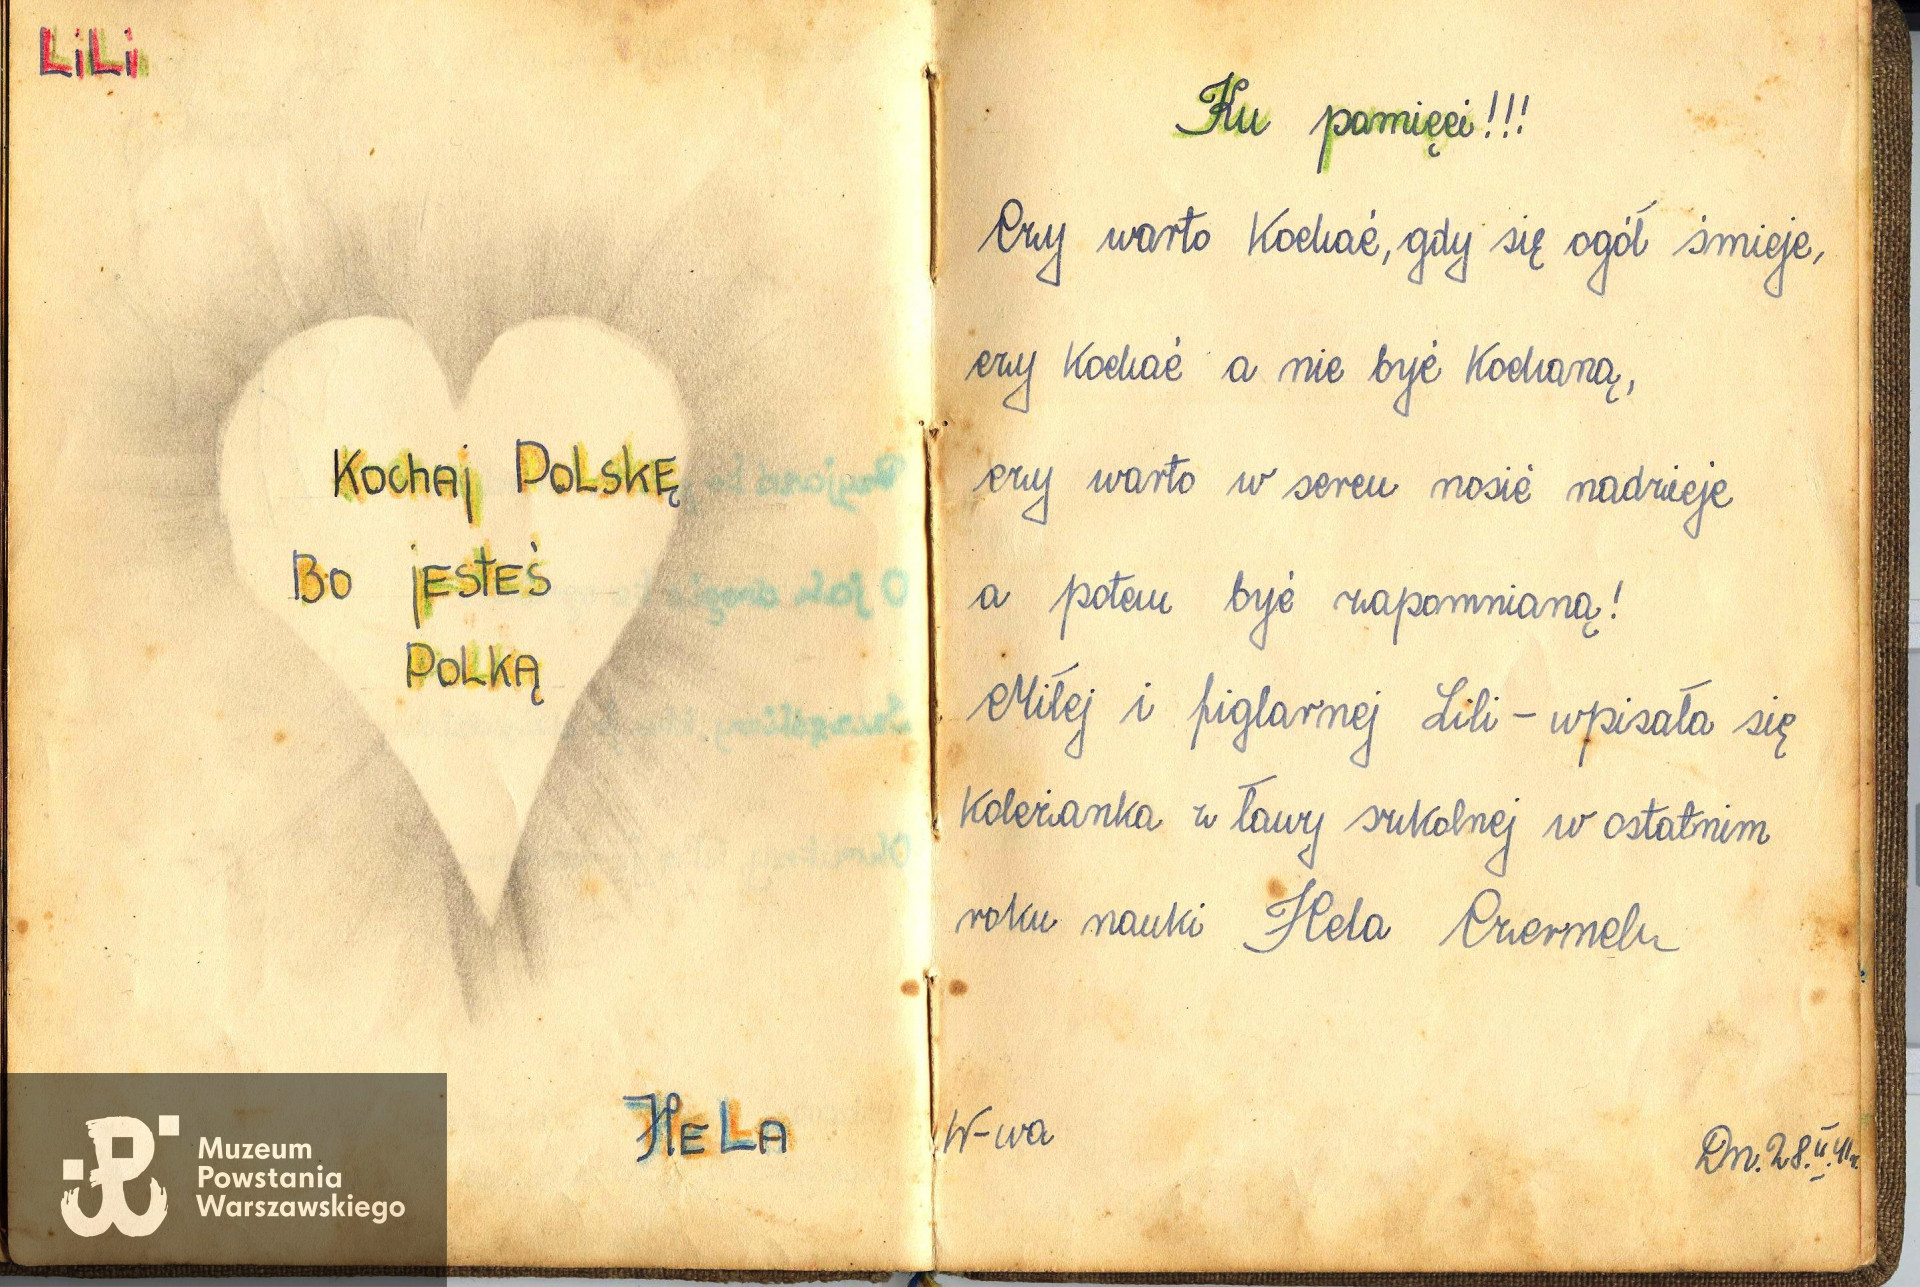 LiLi
Kochaj Polskę
Bo jesteś
Polką
Hela
Ku pamięci!!!
Czy warto Kochać, gdy się ogół śmieje,
czy Kochać a nie być Kochaną,
czy warto w sercu nosić nadzieje
a potem być zapomnianą!
Miłej i figlarnej Lili – wpisała się
Koleżanka z ławy szkolnej w ostatnim
roku nauki Hela
W-wa
Dn. 28.II.41r.
Muzeum
Powstania
Warszawskiego